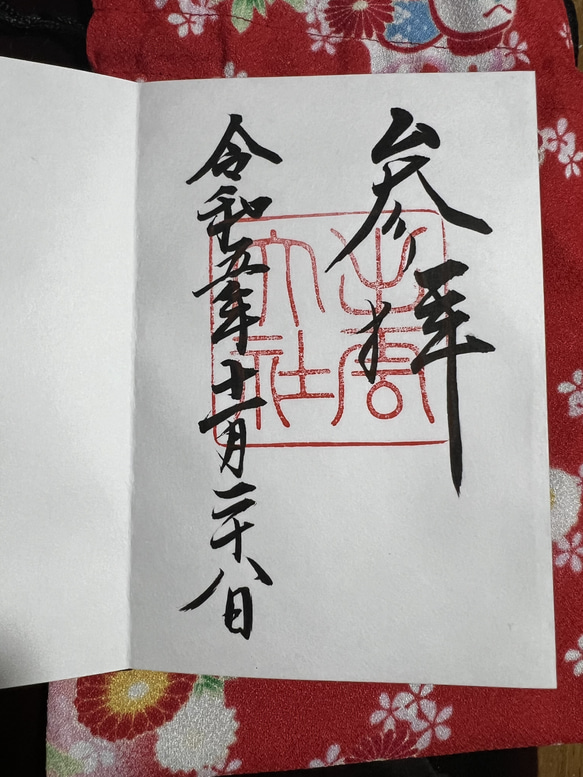 参拝
令和五年十一月二十八日
出雲大社